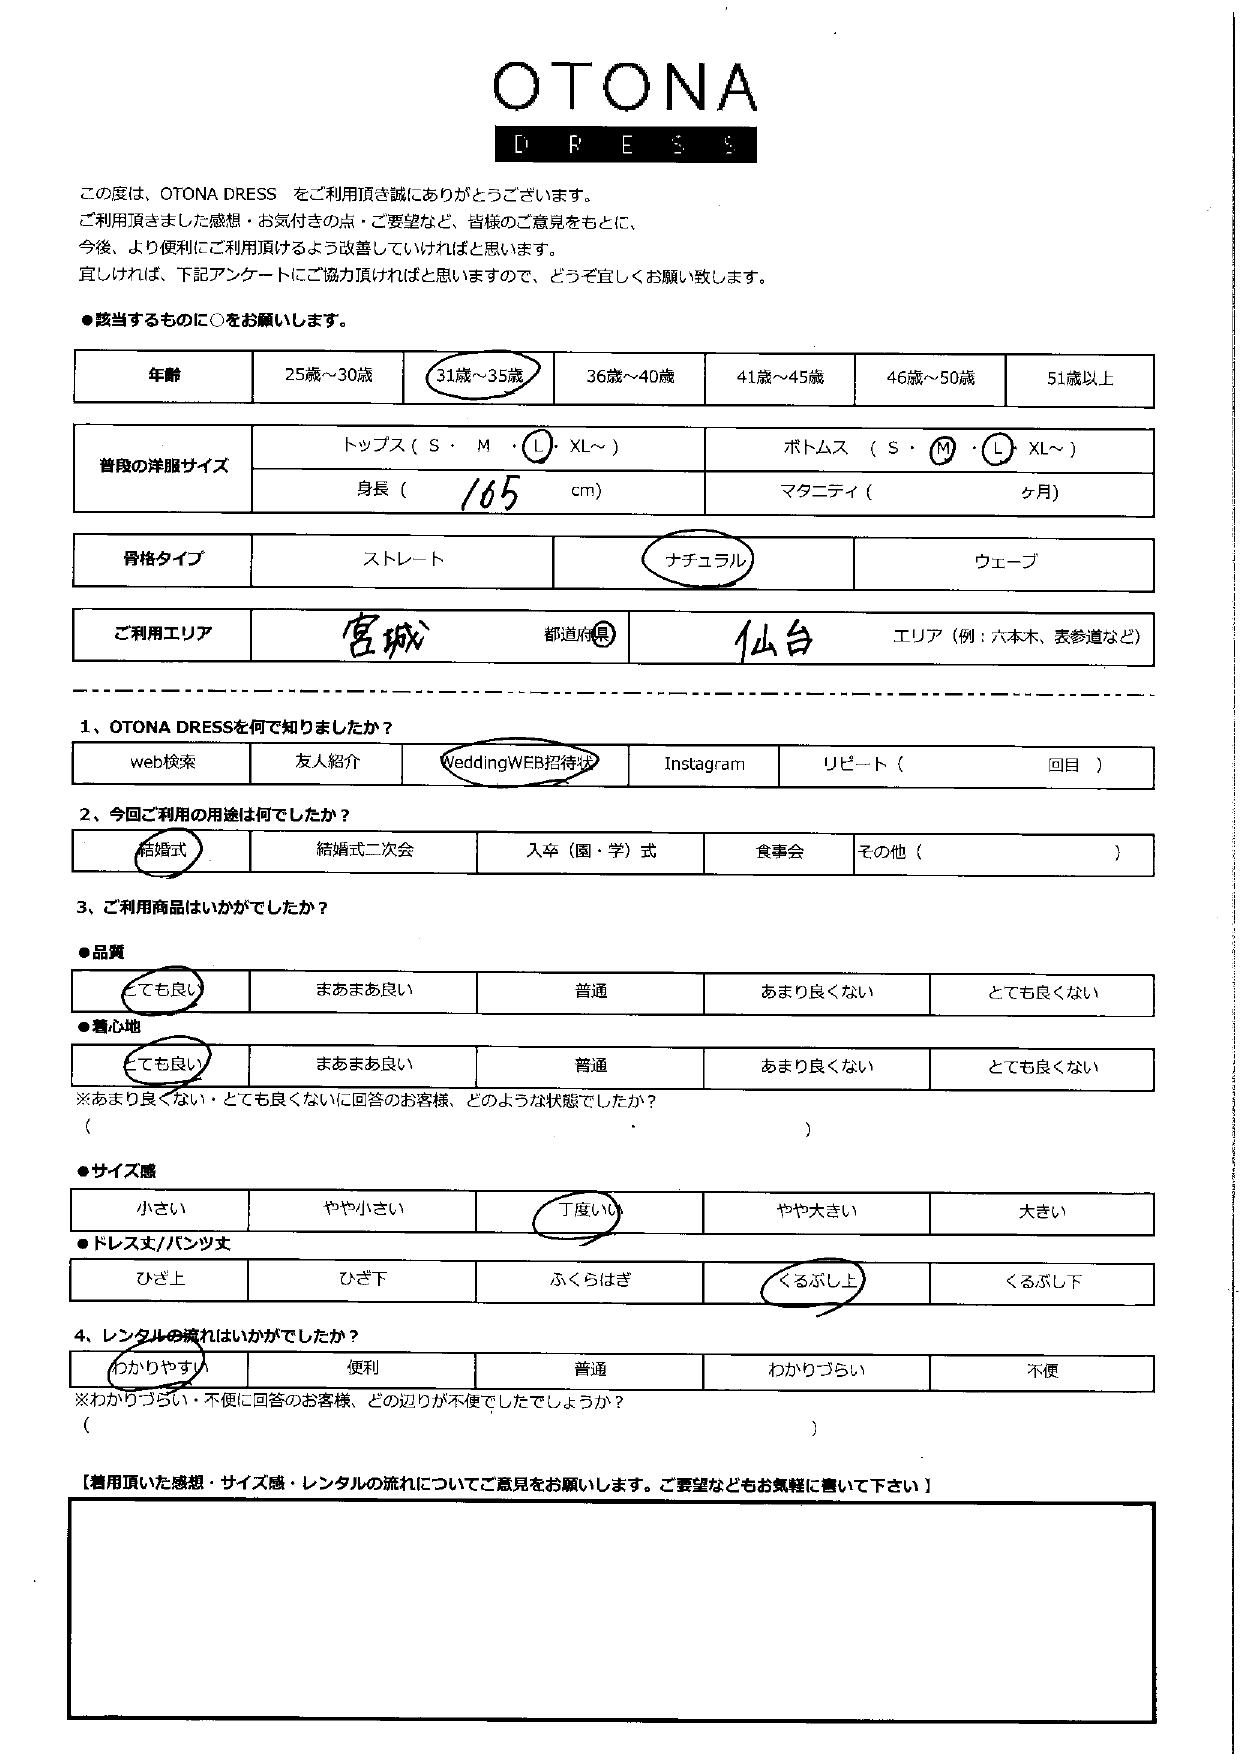 OTONA
DRESS
この度は、OTONA DRESS　をご利用頂き誠にありがとうございます。
ご利用頂きました感想・お気付きの点・ご要望など、皆様のご意見をもとに、
今後、より便利にご利用頂けるよう改善していければと思います。
宜しければ、下記アンケートにご協力頂ければと思いますので、どうぞ宜しくお願い致します。
●該当するものに○をお願いします。
年齢 25歳～30歳 31歳～35歳 36歳～40歳 41歳～45歳 46歳～50歳 51歳以上
普段の洋服サイズ トップス ( S ・ M ・ L ・ XL～ ) ボトムス ( S ・ M ・ L ・ XL～ )
身長 ( 165 cm) マタニティ ( ヶ月)
骨格タイプ ストレート ナチュラル ウェーブ
ご利用エリア 宮城 都道府県 仙台 エリア（例：六本木、表参道など）
1、OTONA DRESSを何で知りましたか？
web検索 友人紹介 WeddingWEB招待状 Instagram リピート（ 回目 ）
2、今回ご利用の用途は何でしたか？
結婚式 結婚式二次会 入卒（園・学）式 食事会 その他（ ）
3、ご利用商品はいかがでしたか？
●品質
とても良い まあまあ良い 普通 あまり良くない とても良くない
●着心地
とても良い まあまあ良い 普通 あまり良くない とても良くない
※あまり良くない・とても良くないに回答のお客様、どのような状態でしたか？
（ ）
●サイズ感
小さい やや小さい 丁度いい やや大きい 大きい
●ドレス丈/パンツ丈
ひざ上 ひざ下 ふくらはぎ くるぶし上 くるぶし下
4、レンタルの流れはいかがでしたか？
わかりやすい 便利 普通 わかりづらい 不便
※わかりづらい・不便に回答のお客様、どの辺りが不便でしたでしょうか？
（ ）
【着用頂いた感想・サイズ感・レンタルの流れについてご意見をお願いします。ご要望などもお気軽に書いて下さい 】